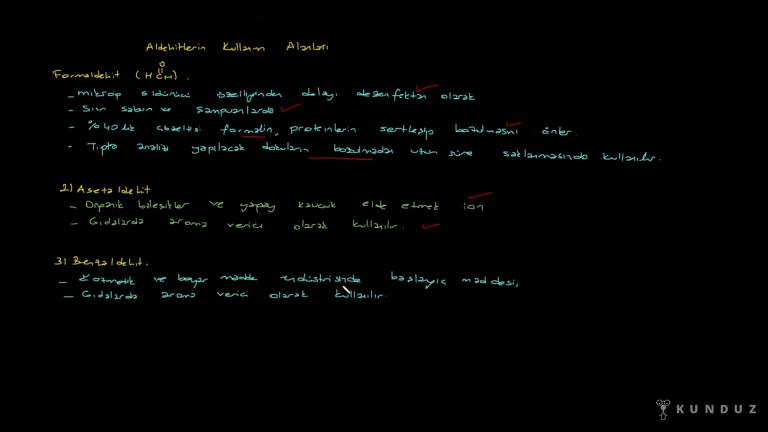 Aldehitlerin Kullanım Alanları
Formaldehit ( H C H ) .
O
- mikrop öldürücü özelliğinden dolayı dezenfektan olarak
- Sıvı sabun ve şampuanlarda
- %40 lık çözeltisi formalin, proteinlerin sertleşip bozulmasını önler.
- Tıpta analizi yapılacak dokuların bozulmadan uzun süre saklanmasında kullanılır.
2) Asetaldehit
- Organik bileşikler ve yapay kauçuk elde etmek için
- Gıdalarda aroma verici olarak kullanılır.
3) Benzaldehit.
- Kozmetik ve boyar madde endüstrisinde başlangıç maddesi,
- Gıdalarda aroma verici olarak kullanılır.
KUNDUZ